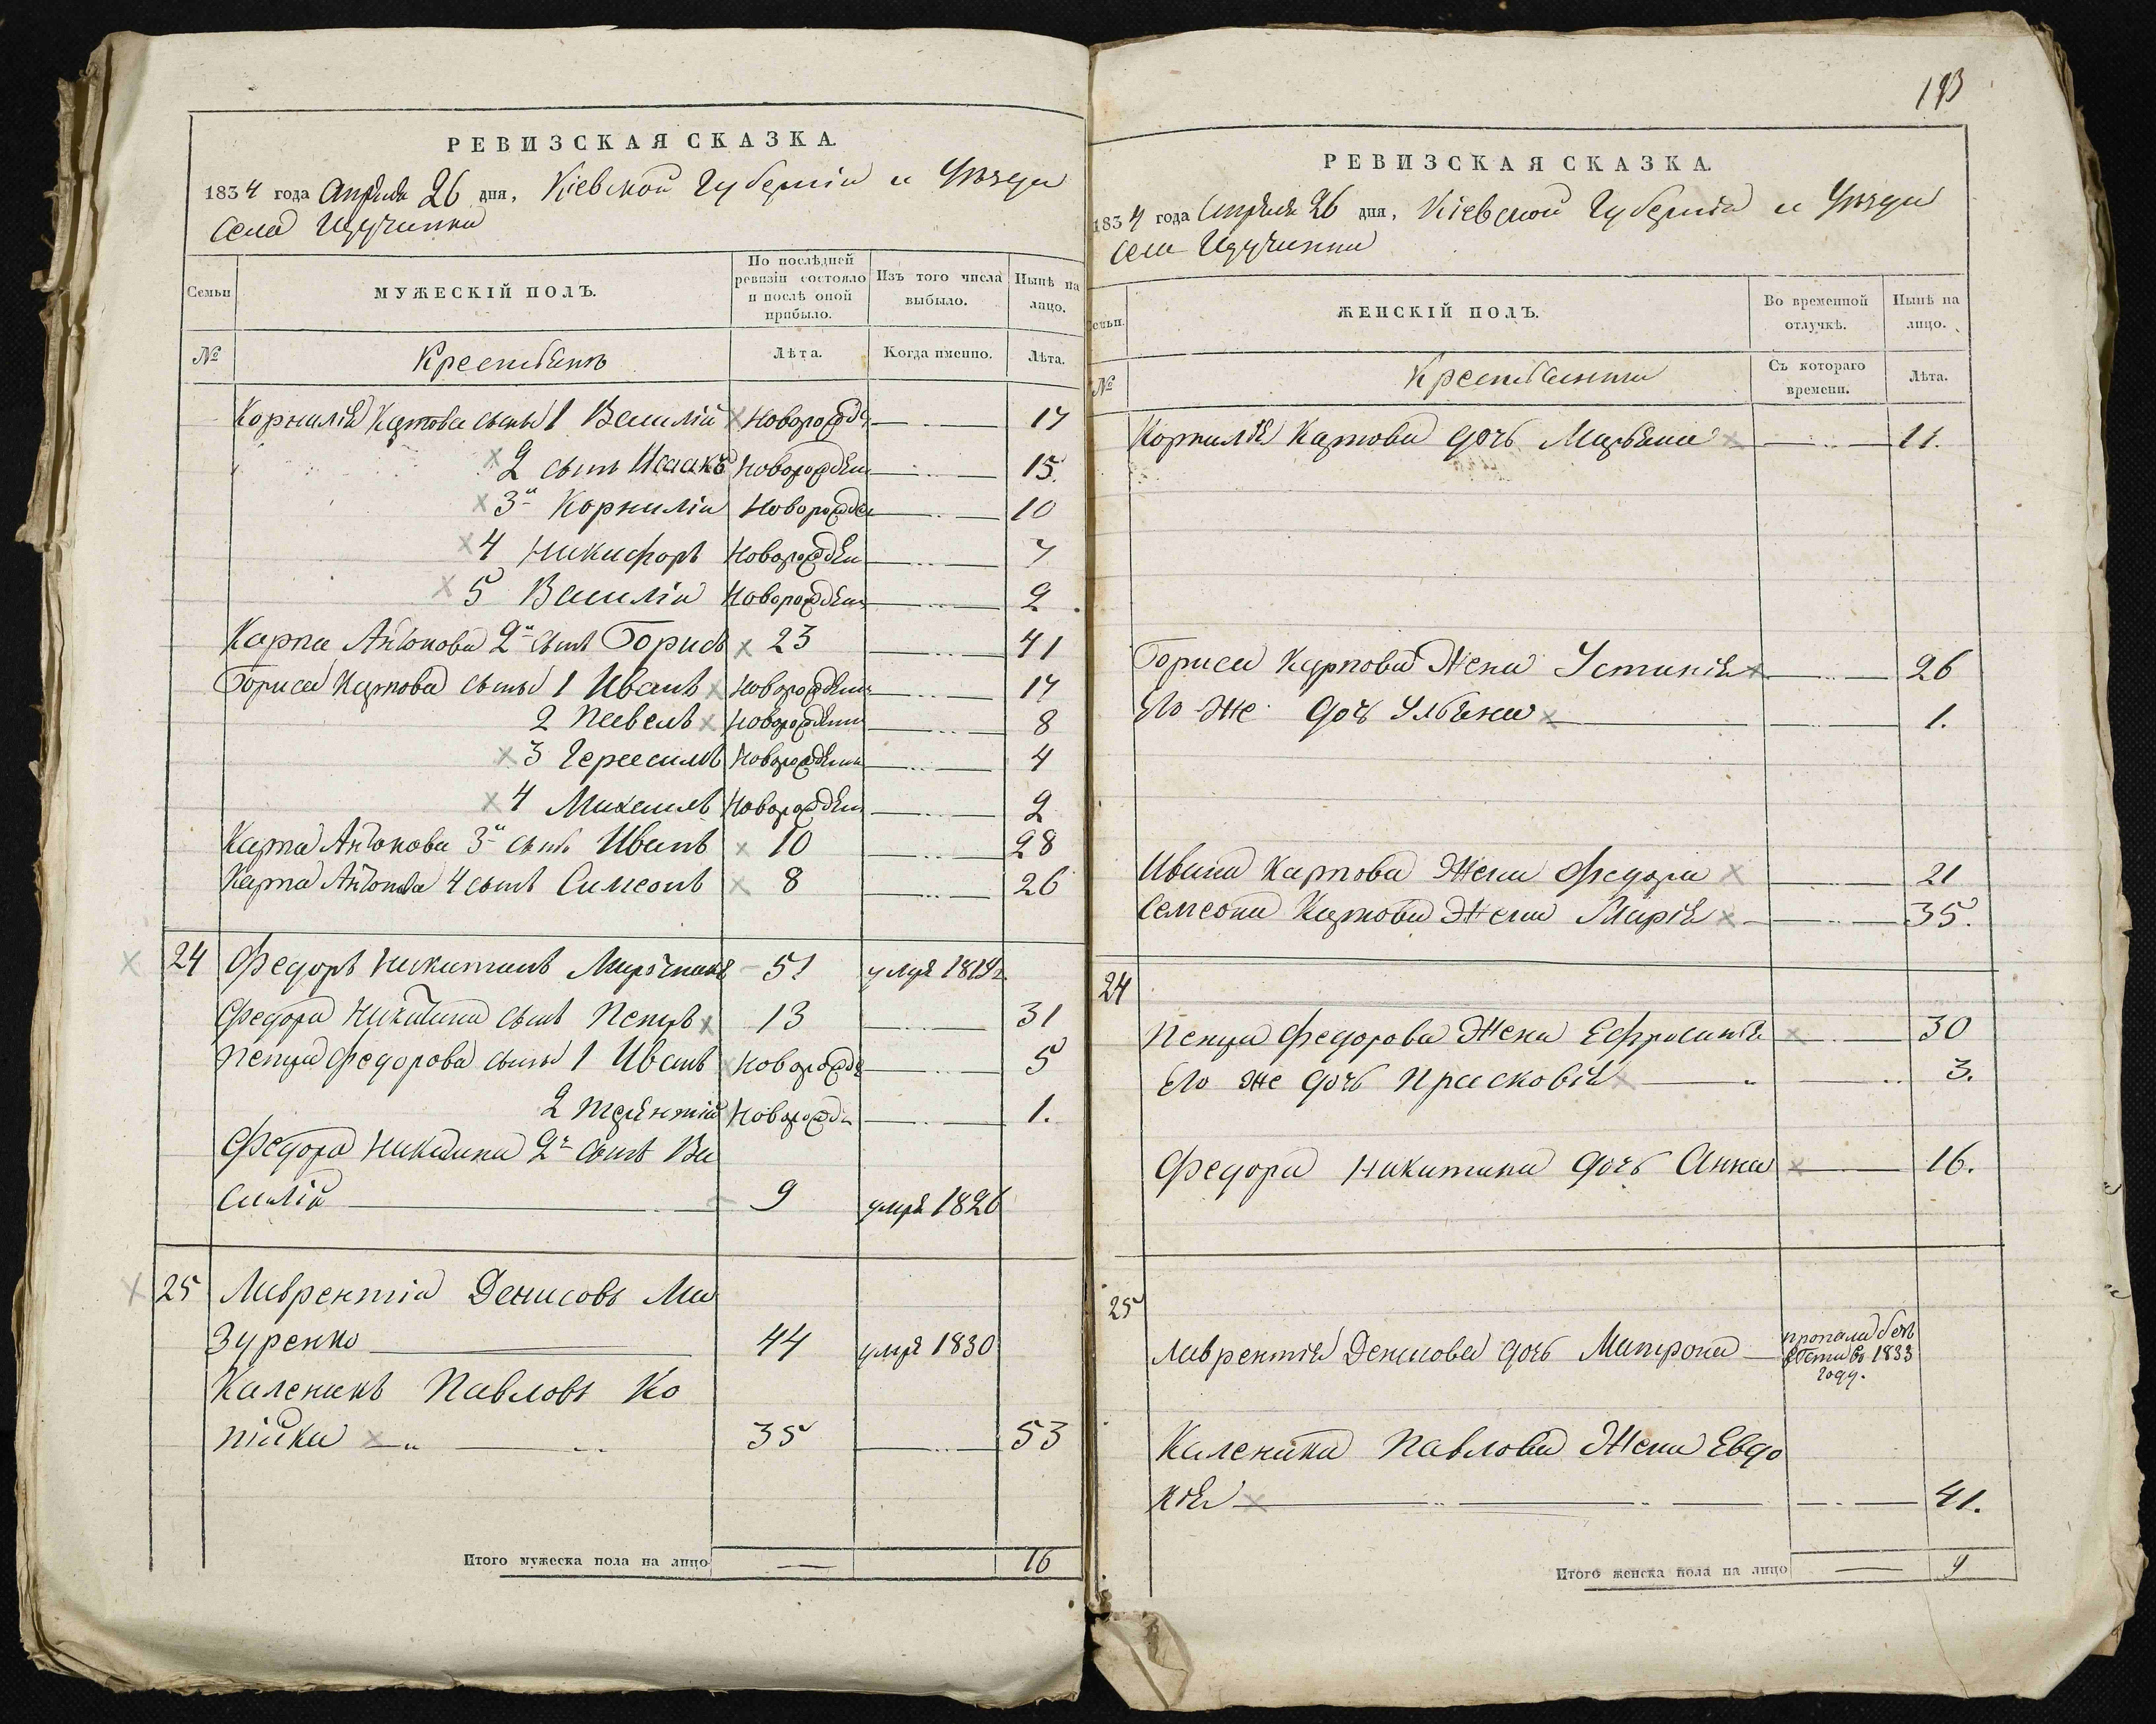 РЕВИЗСКАЯ СКАЗКА.
1834 года Апреля 26 дня, Кіевской Губерніи и Уѣзда
села
Семьи
МУЖЕСКІЙ ПОЛЪ.
По послѣдней ревизіи состояло и послѣ оной прибыло.
Изъ того числа выбыло.
Нынѣ на лицо.
№
Крестьянъ
Лѣта.
Когда именно.
Лѣта.
Корнилія Карпова сыны 1 Василій новорожде 17
2 сынъ Исаакъ новорожден 15.
3й Корнилій новорожден 10
4 Никифоръ новорожден 7
5 Василій новорожден 2
Карпа Антонова 2й сынъ Борисъ 23 41
Бориса Карпова сыны 1 Иванъ новорожден 17
2 Павелъ новорожден 8
3 Герасимъ новорожден 4
4 Михаилъ новорожден 2
Карпа Антонова 3й сынъ Иванъ 10 28
Карпа Антонова 4 сынъ Симеонъ 8 26
24 Федоръ Никитинъ 51 умре
Федора Никитина сынъ Петръ 13 31
Петра Федорова сыны 1 Иванъ новорожде 5
2 Терентій новорожде 1.
Федора Никитина 2й сынъ Ва
силій 9 умре 1826
25 Лаврентій Денисовъ Ма
зуренко 44 умре 1830
Каленикъ Павловъ Ко
пійка 35 53
Итого мужеска пола на лицо — 16
193
РЕВИЗСКАЯ СКАЗКА.
1834 года Апреля 26 дня, Кіевской Губерніи и Уѣзда
села
Семьи.
ЖЕНСКІЙ ПОЛЪ.
Во временной отлучкѣ.
Нынѣ на лицо.
№
Крестьянки
Съ котораго времени.
Лѣта.
Корнилія Карпова дочь Марьяна 11.
Бориса Карпова Жена Устинія 26
Его же дочь Ульяна 1.
Ивана Карпова Жена Федора 21
Семеона Карпова Жена Марія 35.
24
Петра Федорова Жена Ефросинія 30
Его же дочь Прасковія 3.
Федора Никитина дочь Анна 16.
25
Лаврентія Денисова дочь Матрона пропала безъ вѣсти въ 1833 году.
Каленика Павлова Жена Евдо
кія 41.
Итого женска пола на лицо — 9